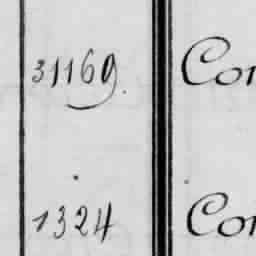 31169. Con
1324 Con